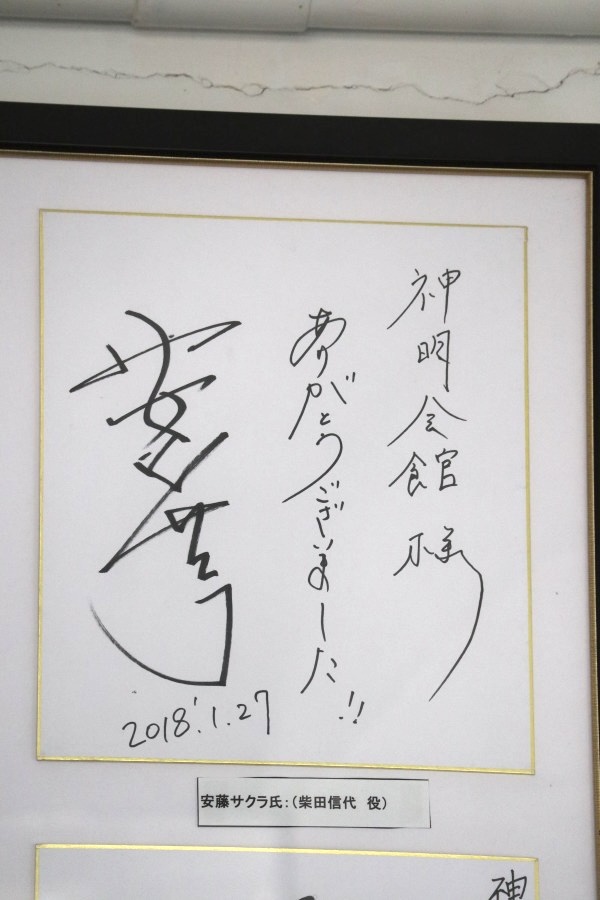 神明会館様
ありがとうございました!!
安藤サクラ
2018'.1.27
安藤サクラ氏:(柴田信代 役)
神